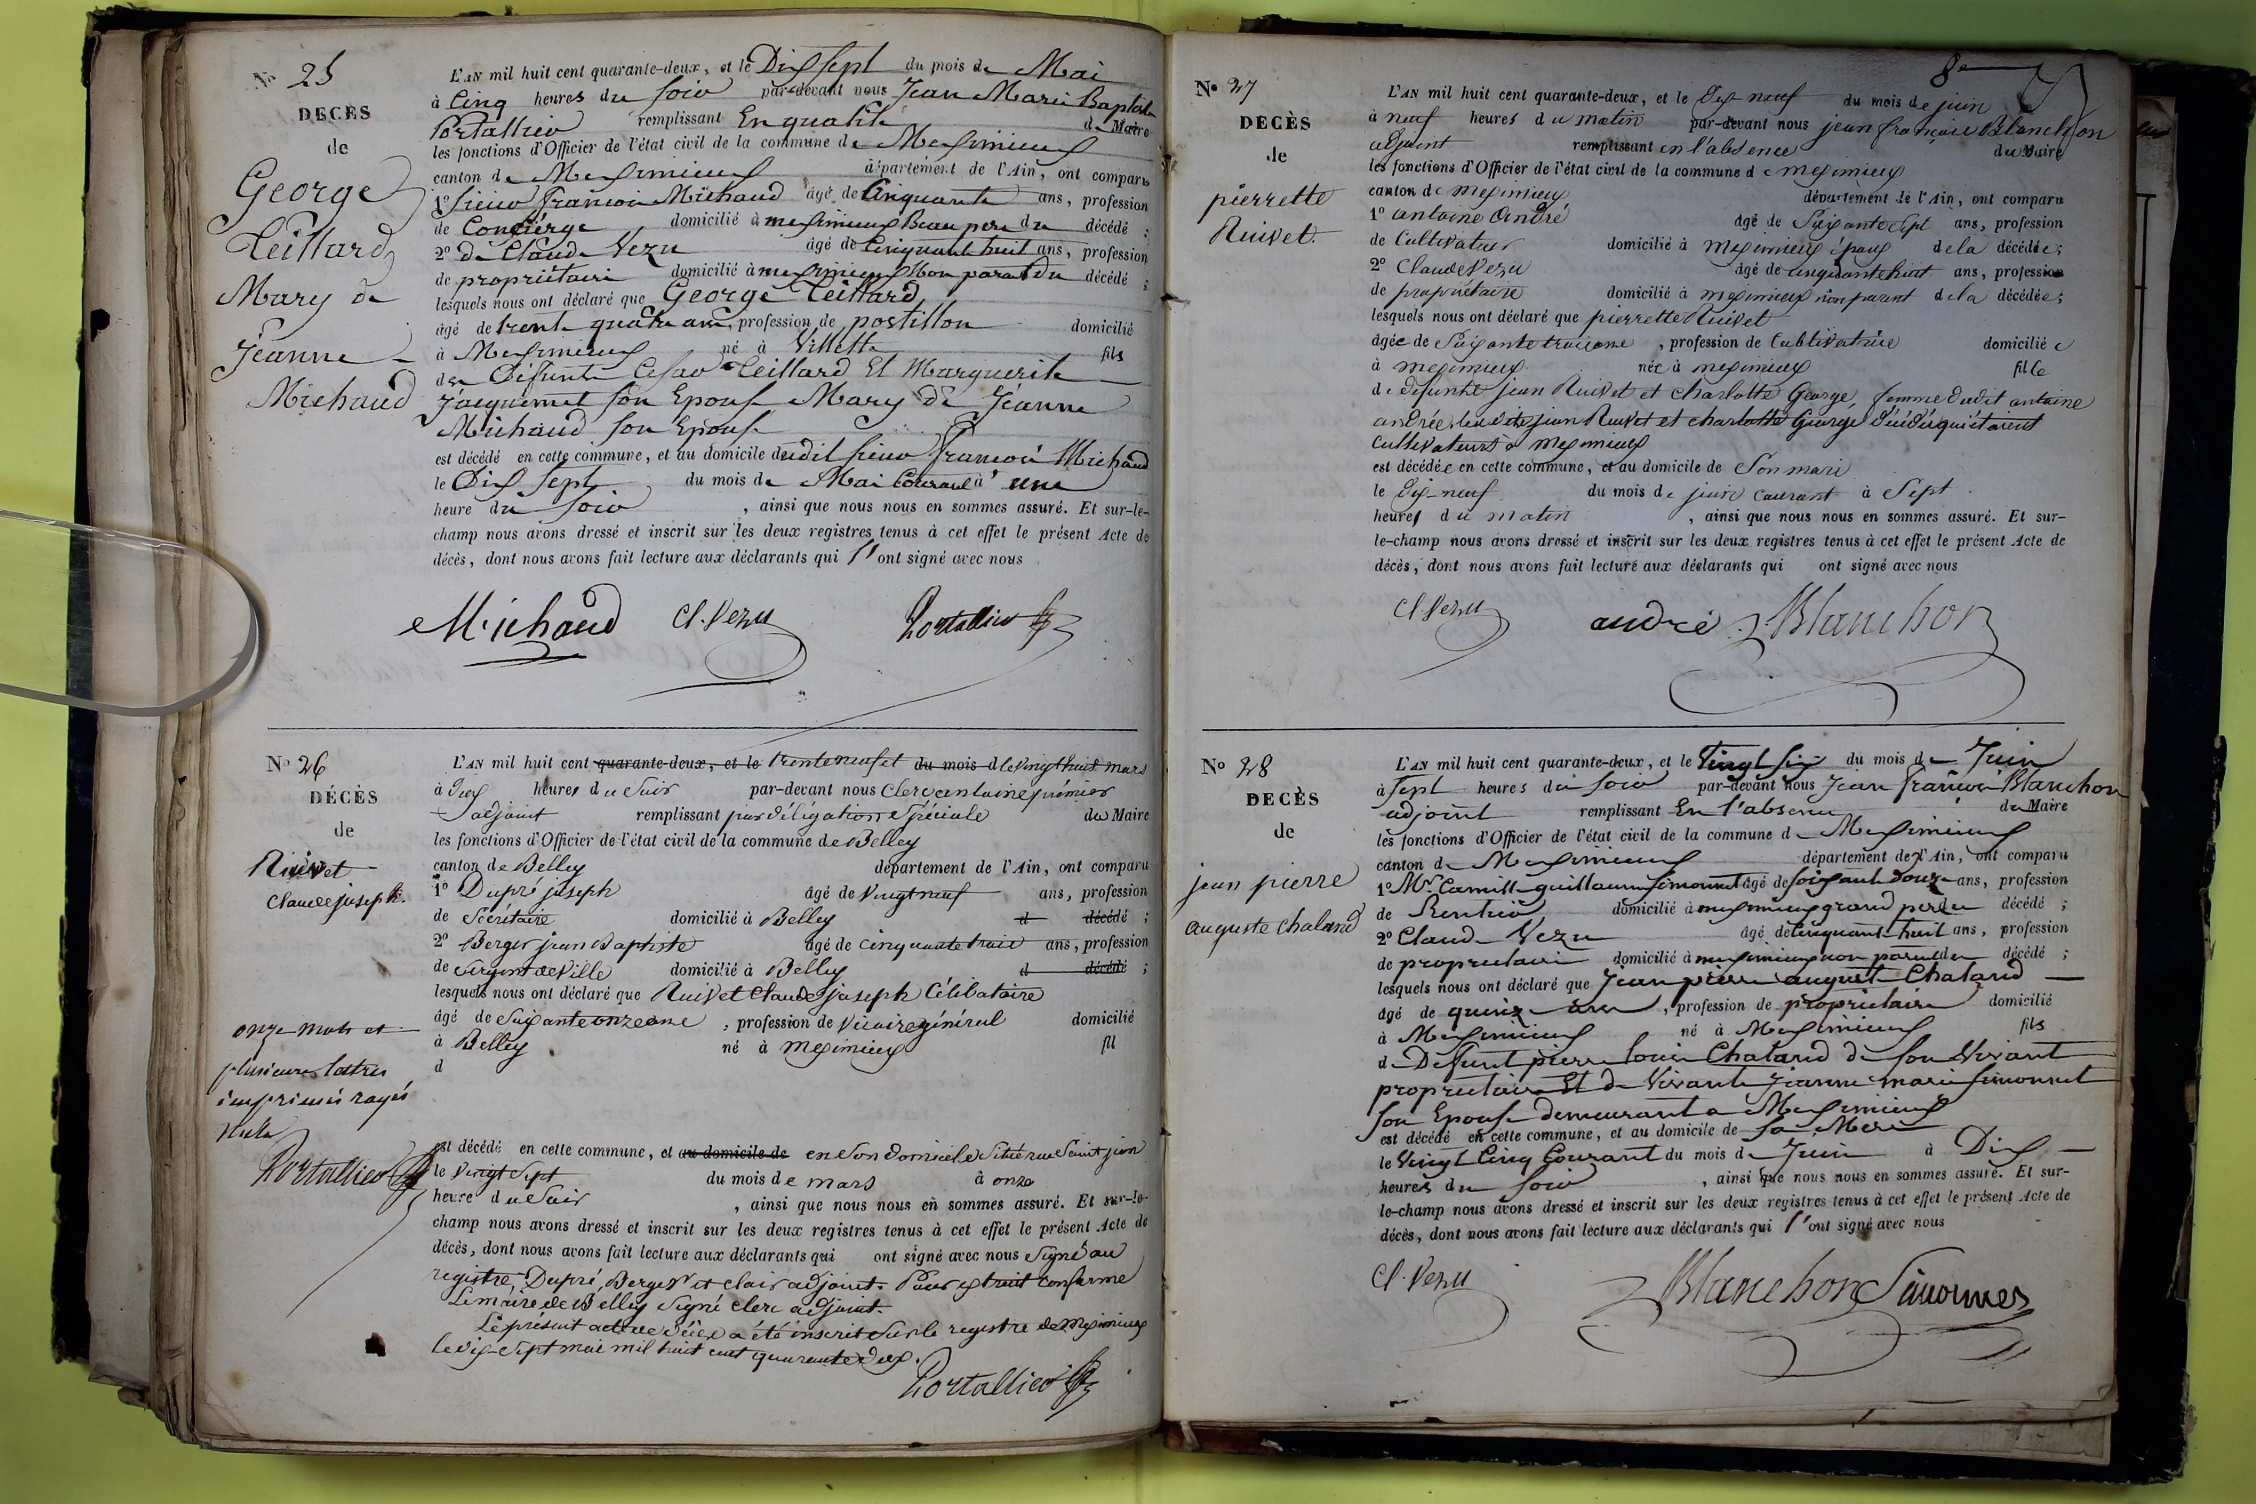 N° 25
DECÈS
de
George
Teillard
Mary de
Jeanne
Michaud
L'AN mil huit cent quarante-deux, et le Dix sept du mois de Mai
à Cinq heures du soir par-devant nous Jean Marie Baptiste
Portallier remplissant En qualité de Maire
les fonctions d'Officier de l'état civil de la commune de Meximieux
canton de Meximieux département de l'Ain, ont comparu
1° sieur françois Michaud âgé de Cinquante ans, profession
de Concièrge domicilié à meximieux Beau pere du décédé ;
2° de Claude Vezu âgé de Cinquante huit ans, profession
de propriétaire domicilié à meximieux Non parent du décédé ;
lesquels nous ont déclaré que George Teillard
âgé de trente quatre ans, profession de postillon domicilié
à Meximieux né à Villette fils
des Défunts Cesar Teillard Et Marguerite
Jacquemet son Epouse Mary de Jéanne
Michaud son Epouse
est décédé en cette commune, et au domicile dudit sieur françois Michaud
le Dix sept du mois de Mai Courant à une
heure du soir , ainsi que nous nous en sommes assuré. Et sur-le-
champ nous avons dressé et inscrit sur les deux registres tenus à cet effet le présent Acte de
décès, dont nous avons fait lecture aux déclarants qui l'ont signé avec nous
Michaud Cl. Vezu Portallier
N° 26
DÉCÈS
de
Ruivet
Claude joseph.
onze mots et
plusieurs lettres
imprimés rayés
nuls
Portallier
L'AN mil huit cent quarante-deux, et le trente neuf et du mois d le vingt huit mars
à dix heures du Soir par-devant nous Clerc antoine premier
adjoint remplissant par délégation Spéciale du Maire
les fonctions d'Officier de l'état civil de la commune de Belley
canton de Belley département de l'Ain, ont comparu
1° Dupré joseph âgé de vingt neuf ans, profession
de Secrétaire domicilié à Belley d décédé ;
2° Berger jean Baptiste âgé de cinquante trois ans, profession
de Sergent de Ville domicilié à Belley d décédé ;
lesquels nous ont déclaré que Ruivet Claude joseph Célibataire
âgé de Soixante onze ans , profession de Vicaire général domicilié
à Belley né à meximieux fil
d
est décédé en cette commune, et au domicile de en Son domicile Situé rue Saint jean
le vingt Sept du mois de mars à onze
heure du Soir , ainsi que nous nous en sommes assuré. Et sur-le-
champ nous avons dressé et inscrit sur les deux registres tenus à cet effet le présent Acte de
décès, dont nous avons fait lecture aux déclarants qui ont signé avec nous Signé au
registre, Dupré, Berger et clair adjoint. Pour extrait conforme
Le maire de Belley Signé clerc adjoint.
Le présent acte de décès a été inscrit Sur le registre de Meximieux
le dix-Sept mai mil huit cent quarante deux.
Portallier
8e
N° 27
DECÈS
de
pierrette
Ruivet.
L'AN mil huit cent quarante-deux, et le dix neuf du mois de juin
à neuf heures du matin par-devant nous jean françois Blanchon
adjoint remplissant en l'absence du Maire
les fonctions d'Officier de l'état civil de la commune de meximieux
canton de meximieux département de l'Ain, ont comparu
1° antoine André âgé de Soixante Sept ans, profession
de Cultivateur domicilié à meximieux époux de la décédée;
2° Claude Vezu âgé de cinquante huit ans, profession
de propriétaire domicilié à meximieux non parent de la décédée;
lesquels nous ont déclaré que pierrette Ruivet
âgée de Soixante trois ans , profession de Cultivatrice domiciliée
à meximieux née à meximieux fille
de défunts jean Ruivet et charlotte George, femme dudit antoine
andrée, les dits jean Ruivet et charlotte George décédés qui étaient
cultivateurs à meximieux
est décédée en cette commune, et au domicile de Son mari
le dix-neuf du mois de juin courant à Sept
heures du matin , ainsi que nous nous en sommes assuré. Et sur-
le-champ nous avons dressé et inscrit sur les deux registres tenus à cet effet le présent Acte de
décès, dont nous avons fait lecture aux déclarants qui ont signé avec nous
Cl. Vezu andré Blanchon
N° 28
DECÈS
de
jean pierre
auguste chaland
L'AN mil huit cent quarante-deux, et le Vingt six du mois de Juin
à sept heures du soir par-devant nous Jean françois Blanchon
adjoint remplissant En l'absence du Maire
les fonctions d'Officier de l'état civil de la commune de Meximieux
canton de Meximieux département de l'Ain, ont comparu
1° Mr. Camille guillaume simonnet âgé de soixante douze ans, profession
de Rentier domicilié à meximieux grand pere du décédé ;
2° Claude Vezu âgé de cinquante huit ans, profession
de propriétaire domicilié à meximieux non parent du décédé ;
lesquels nous ont déclaré que Jean pierre auguste Chaland
âgé de quinze ans , profession de propriétaire domicilié
à Meximieux né à Meximieux fils
de Défunt pierre louis Chaland de son Vivant
propriétaire Et de Vivante Jeanne marie simonnet
son Epouse demeurant a Meximieux
est décédé en cette commune, et au domicile de sa Mere
le Vingt Cinq Courant du mois de Juin à Dix
heures du soir , ainsi que nous nous en sommes assuré. Et sur-
le-champ nous avons dressé et inscrit sur les deux registres tenus à cet effet le présent Acte de
décès, dont nous avons fait lecture aux déclarants qui l'ont signé avec nous
Cl. Vezu Blanchon Simonnet